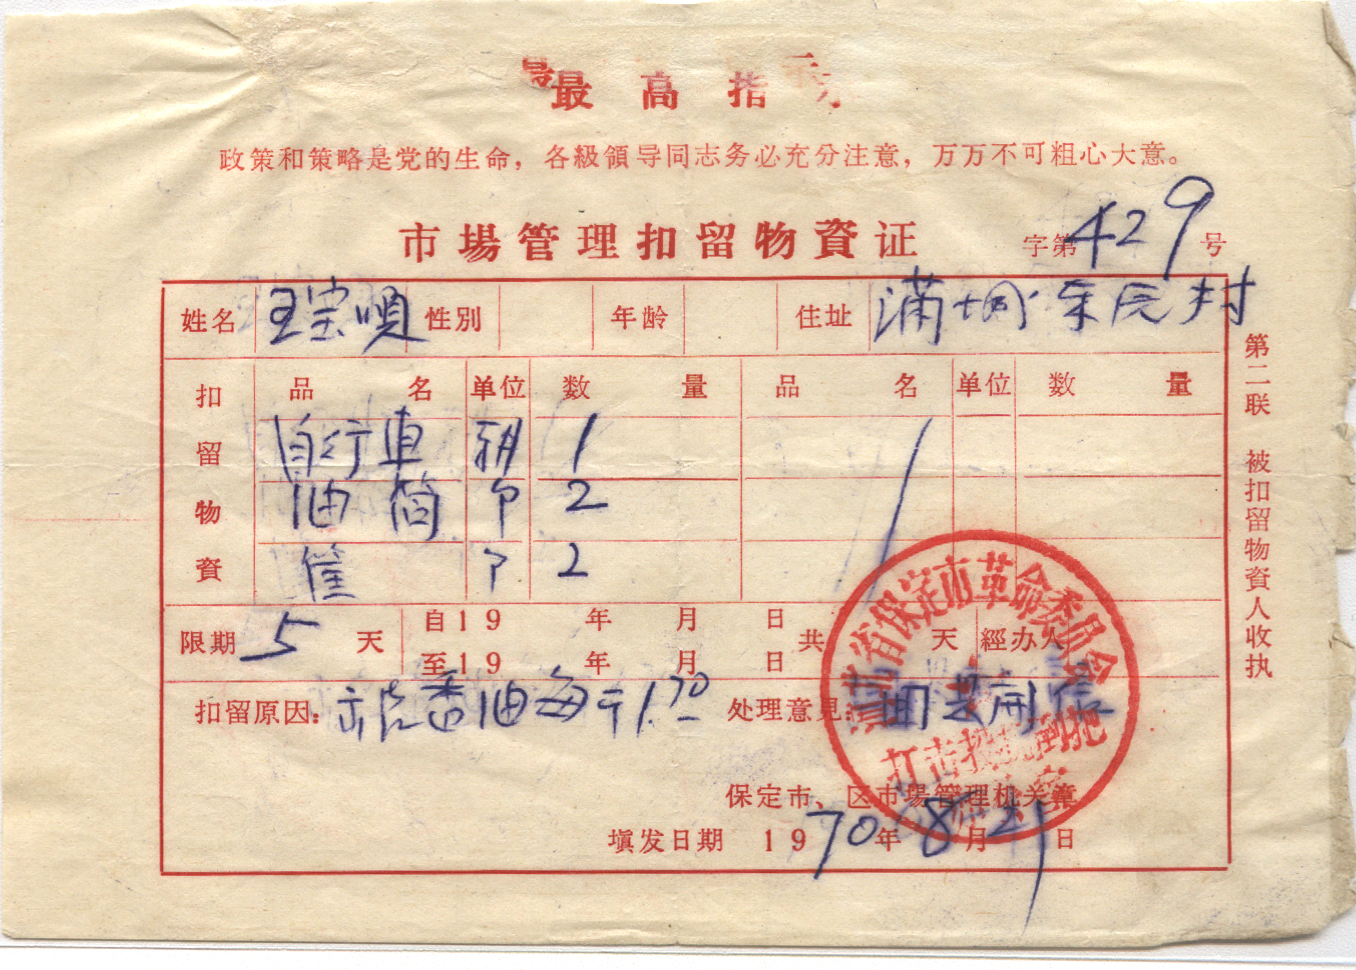 最高指
政策和策略是党的生命，各級領导同志务必充分注意，万万不可粗心大意。
市場管理扣留物資证
字第429号
姓名 王宝 性别 年龄 住址 满城 村
扣留物資 品名 单位 数量 品名 单位 数量
自行車 辆 1
油筒 个 2
筐 个 2
限期 5 天 自19 年 月 日 至19 年 月 日 共 天 經办人
扣留原因： 香油每斤1.70 处理意见：
保定市、区市場管理机关章
填发日期 1970年8月21日
第二联 被扣留物資人收执
河北省保定市革命委員会
打击投机倒把